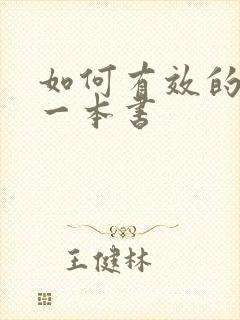 如何有效的
一本书
王健林